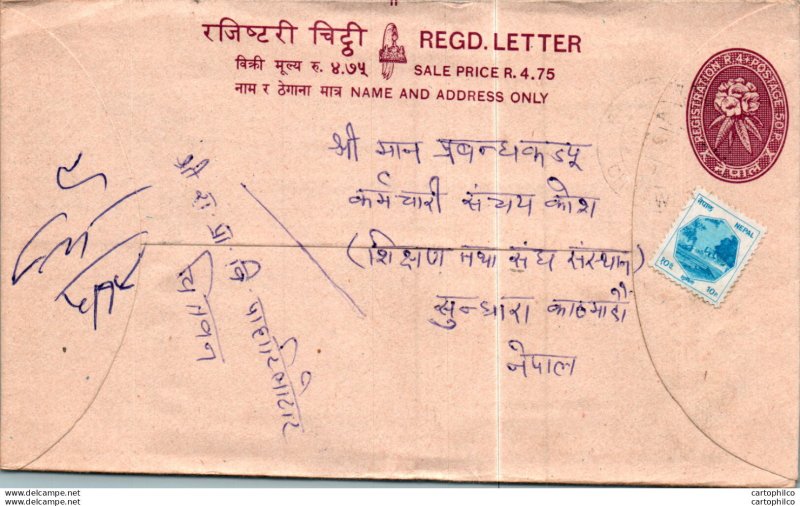 रजिष्टरी चिट्ठी REGD. LETTER
बिक्री मूल्य रु. ४.७५ SALE PRICE R. 4.75
नाम र ठेगाना मात्र NAME AND ADDRESS ONLY
REGISTRATION R. 4 + POSTAGE 50 P.
नेपाल
नेपाल NEPAL
१०पै 10P
श्री मान प्रबन्धकज्यू
कर्मचारी संचय कोश
(शिक्षण तथा संघ संस्थान)
सुन्धारा काठमाडौं
नेपाल
श्री रा. प्रा. वि.
चितवन
cartophilco
cartophilco